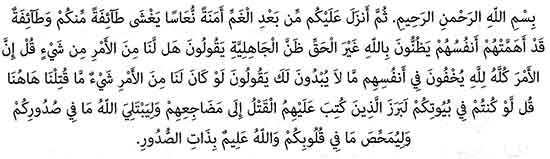 بِسْمِ اللهِ الرَّحْمنِ الرَّحِيمِ. ثُمَّ أَنزَلَ عَلَيْكُم مِّن بَعْدِ الْغَمِّ أَمَنَةً نُّعَاسًا يَغْشَى طَآئِفَةً مِّنكُمْ وَطَآئِفَةٌ
قَدْ أَهَمَّتْهُمْ أَنفُسُهُمْ يَظُنُّونَ بِاللهِ غَيْرَ الْحَقِّ ظَنَّ الْجَاهِلِيَّةِ يَقُولُونَ هَل لَّنَا مِنَ الأَمْرِ مِن شَيْءٍ قُلْ إِنَّ
الأَمْرَ كُلَّهُ لِلَّهِ يُخْفُونَ فِي أَنفُسِهِم مَّا لاَ يُبْدُونَ لَكَ يَقُولُونَ لَوْ كَانَ لَنَا مِنَ الأَمْرِ شَيْءٌ مَّا قُتِلْنَا هَاهُنَا
قُل لَّوْ كُنتُمْ فِي بُيُوتِكُمْ لَبَرَزَ الَّذِينَ كُتِبَ عَلَيْهِمُ الْقَتْلُ إِلَى مَضَاجِعِهِمْ وَلِيَبْتَلِيَ اللهُ مَا فِي صُدُورِكُمْ
وَلِيُمَحِّصَ مَا فِي قُلُوبِكُمْ وَاللهُ عَلِيمٌ بِذَاتِ الصُّدُورِ.